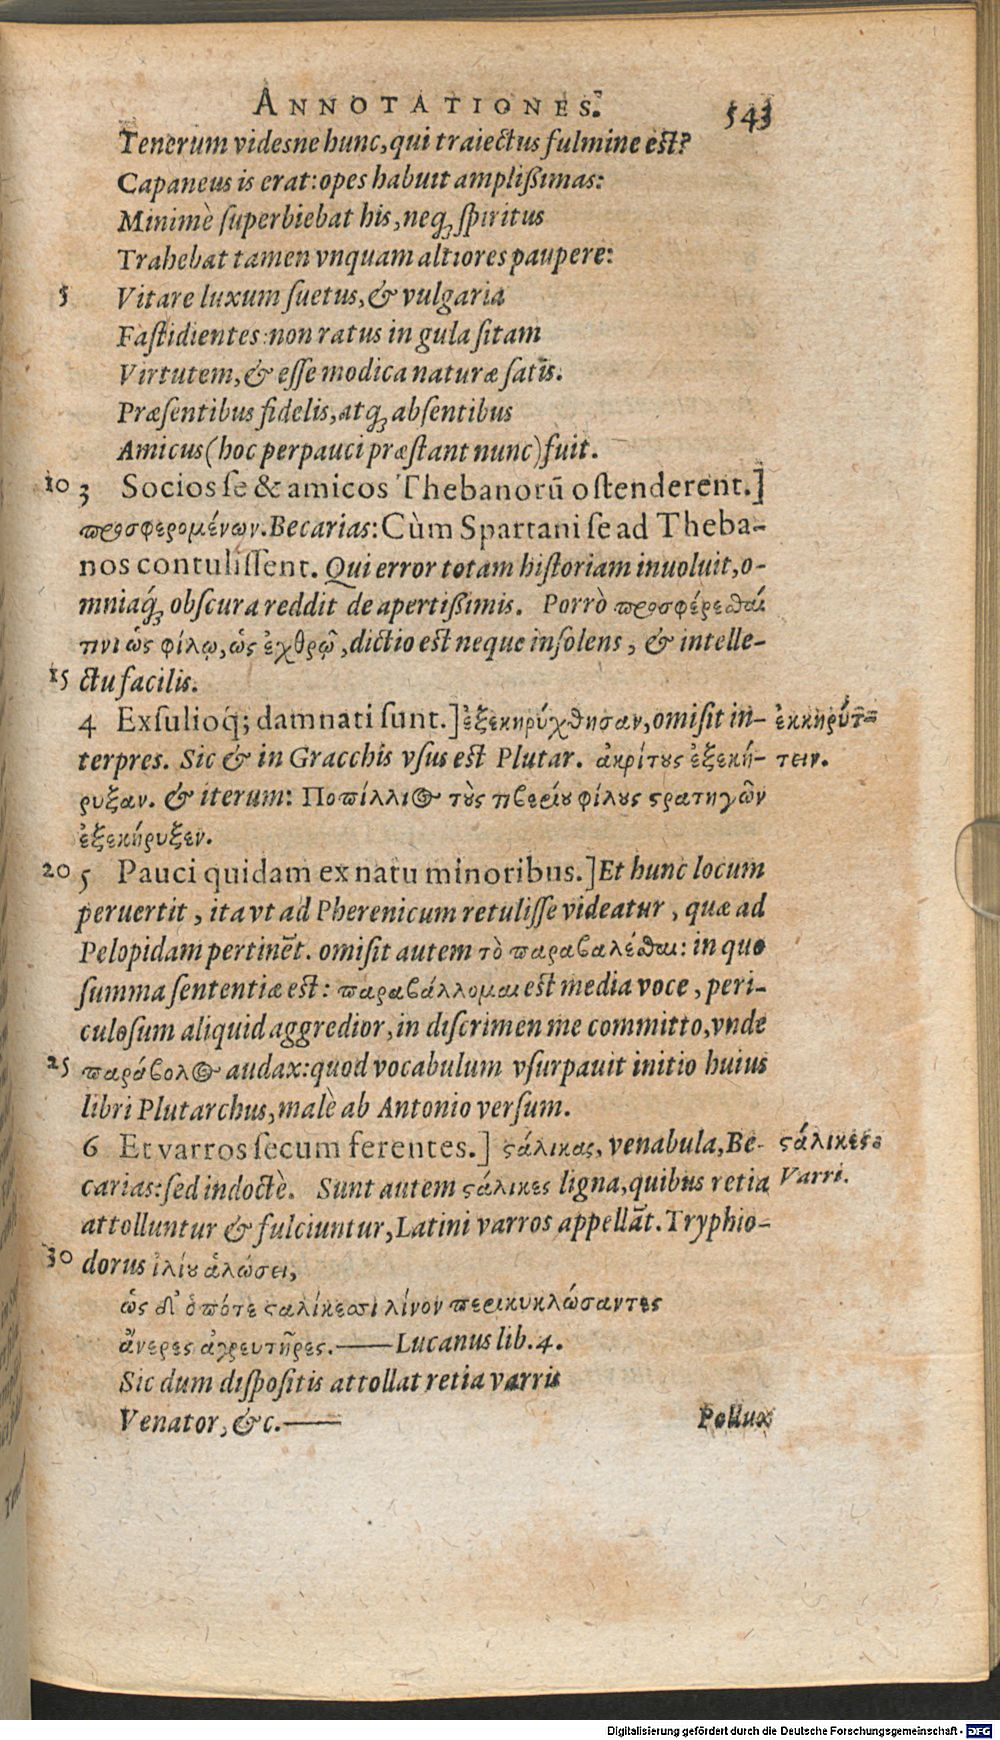 ANNOTATIONES. 543
Tenerum videsne hunc, qui traiectus fulmine est?
Capaneus is erat: opes habuit amplißimas:
Minimè ſuperbiebat his, neq; ſpiritus
Trahebat tamen vnquam altiores paupere:
5 Vitare luxum ſuetus, & vulgaria
Faſtidientes: non ratus in gula ſitam
Virtutem, & eſſe modica naturæ ſatis.
Præſentibus fidelis, atq; abſentibus
Amicus (hoc perpauci præſtant nunc) fuit.
10 3 Socios ſe & amicos Thebanorū oſtenderent.]
προσφερομένων. Becarias: Cùm Spartani ſe ad Theba-
nos contuliſſent. Qui error totam hiſtoriam inuoluit, o-
mniaq́; obſcura reddit de apertißimis. Porrò προσφέρεσθαί
τινι ὡς φίλῳ, ὡς ἐχθρῷ, dictio est neque inſolens, & intelle-
15 ctu facilis.
4 Exſulioq́; damnati ſunt.] ἐξεκηρύχθησαν, omiſit in- ἐκκηρύτ-
terpres. Sic & in Gracchis vſus est Plutar. ἀκρίτους ἐξεκή- τειν.
ρυξαν. & iterum: Ποπίλλιος τοὺς τιβερίου φίλους στρατηγῶν
ἐξεκήρυξεν.
20 5 Pauci quidam ex natu minoribus.] Et hunc locum
peruertit, ita vt ad Pherenicum retuliſſe videatur, quæ ad
Pelopidam pertinēt. omiſit autem τὸ παραβαλέσθαι: in quo
ſumma ſententiæ est: παραβάλλομαι est media voce, peri-
culoſum aliquid aggredior, in diſcrimen me committo, vnde
25 παράβολος audax: quod vocabulum vſurpauit initio huius
libri Plutarchus, malè ab Antonio verſum.
6 Et varros ſecum ferentes.] στάλικας, venabula, Be- στάλικες.
carias: ſed indoctè. Sunt autem στάλικες ligna, quibus retia Varri.
attolluntur & fulciuntur, Latini varros appellāt. Tryphio-
30 dorus ἰλίου ἁλώσει,
ὡς δ' ὁπότε σταλίκεσσι λίνον περικυκλώσαντες
ἄνερες ἀγρευτῆρες.—— Lucanus lib. 4.
Sic dum diſpoſitis attollat retia varris
Venator, &c.——
Pollux
Digitalisierung gefördert durch die Deutsche Forschungsgemeinschaft - DFG